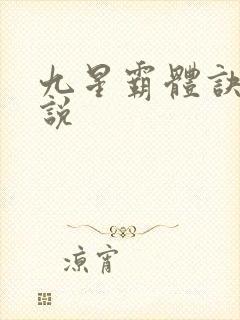 九星霸體訣
說
涼宵